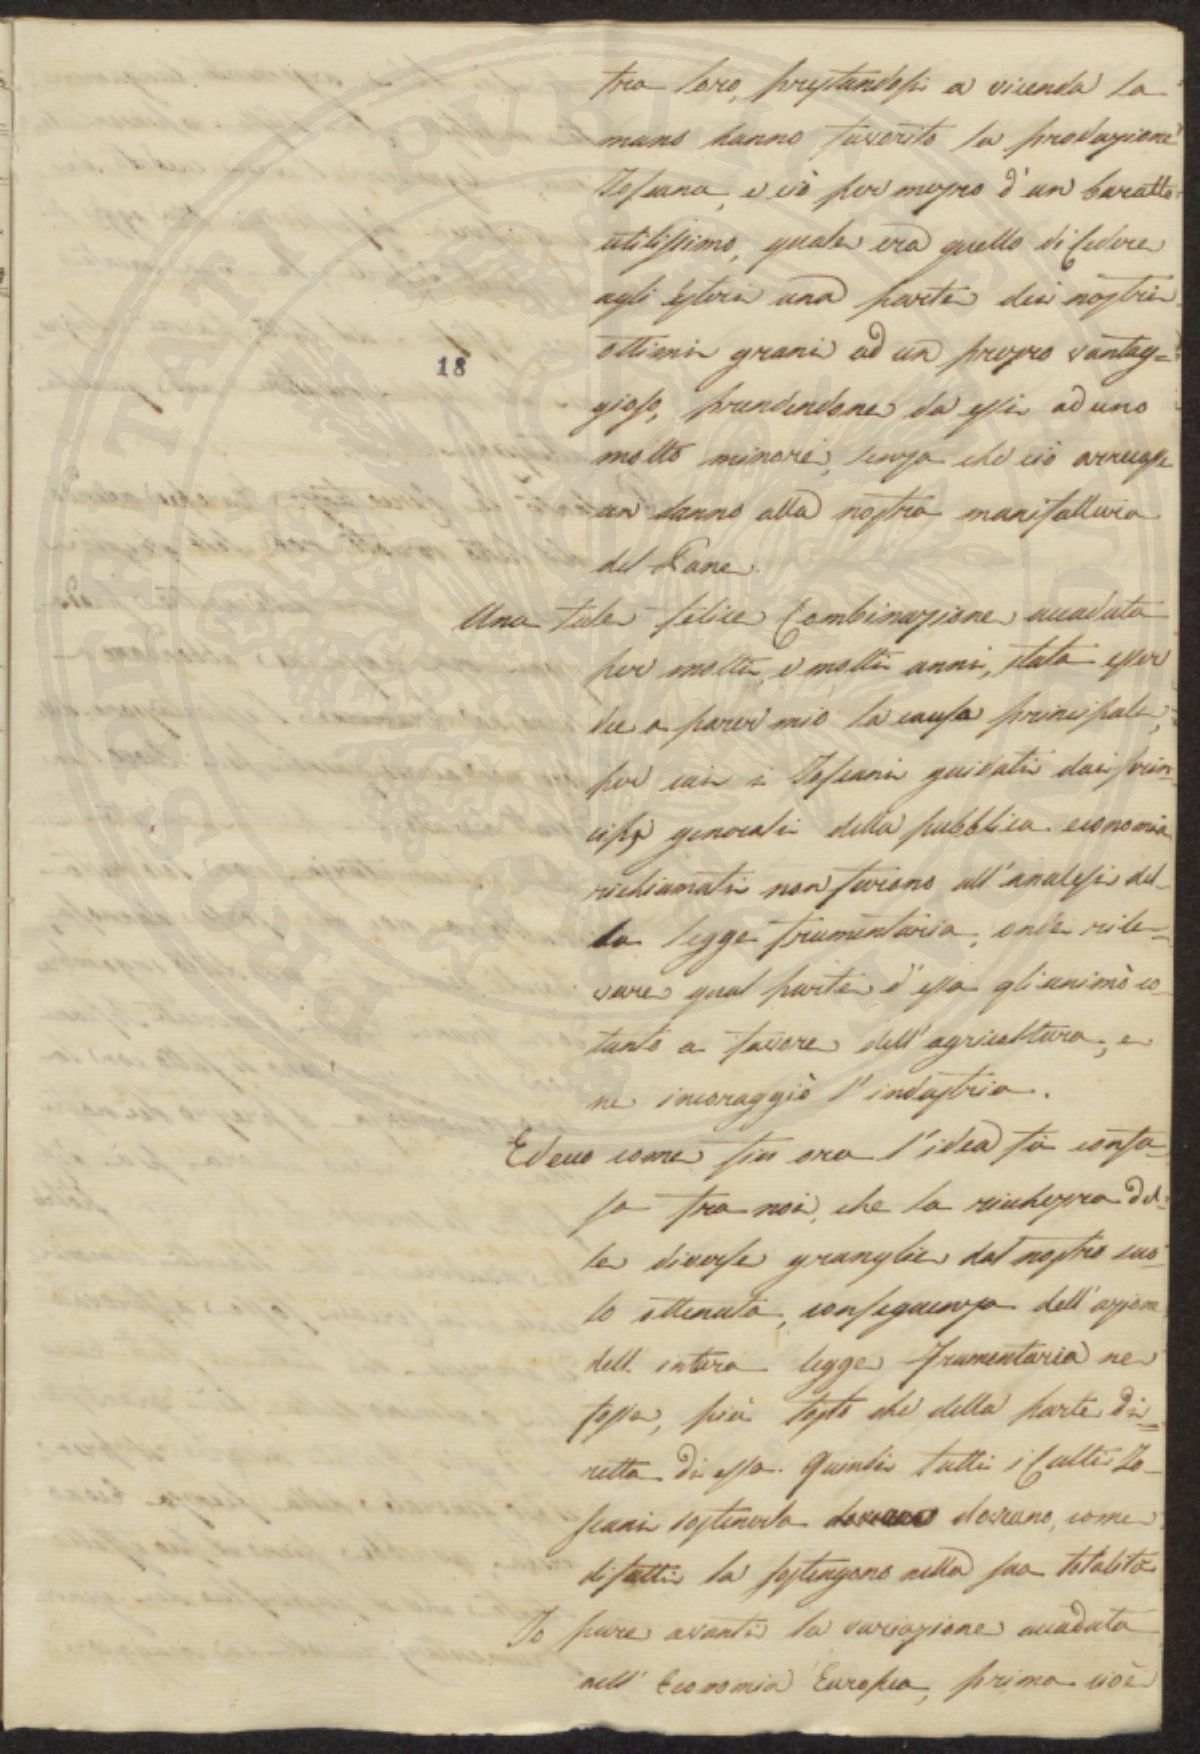 tra loro, prestandosi a vicenda la
mano hanno favorito la produzione
Toscana, e ciò per mezzo d'un baratto
utilissimo, quale era quello di cedere
agli Esteri una parte dei nostri
ottimi grani ad un prezzo vantag=
18
gioso, prendendone da essi ad uno
molto minore, senza che ciò arrecasse
un danno alla nostra manifattura
del Pane.
Una tale felice Combinazione accaduta
per molti, e molti anni, stata esser
dee a parer mio la causa principale,
per cui i Toscani guidati dai prin-
cipj generali della pubblica economia
richiamati non furono all'analisi del-
la legge frumentaria, onde rile-
vare qual parte d'essa gli animò co-
tanto a favore dell'agricoltura, e
ne incoraggiò l'industria.
Ed ecco come fin ora l'idea fù confu-
sa tra noi, che la ricchezza del-
le diverse granaglie dal nostro suo-
lo ottenuta, conseguenza dell'azione
dell intera legge Frumentaria ne
fosse, più tosto che della parte di=
retta di essa. Quindi tutti i Culti To-
scani sostenerla dovrano, come
difatti la sostengono nella sua totalità
Io pure avanti la variazione accaduta
nell' Economia Europea, prima cioè
PROSPERITATI PUBLICAE